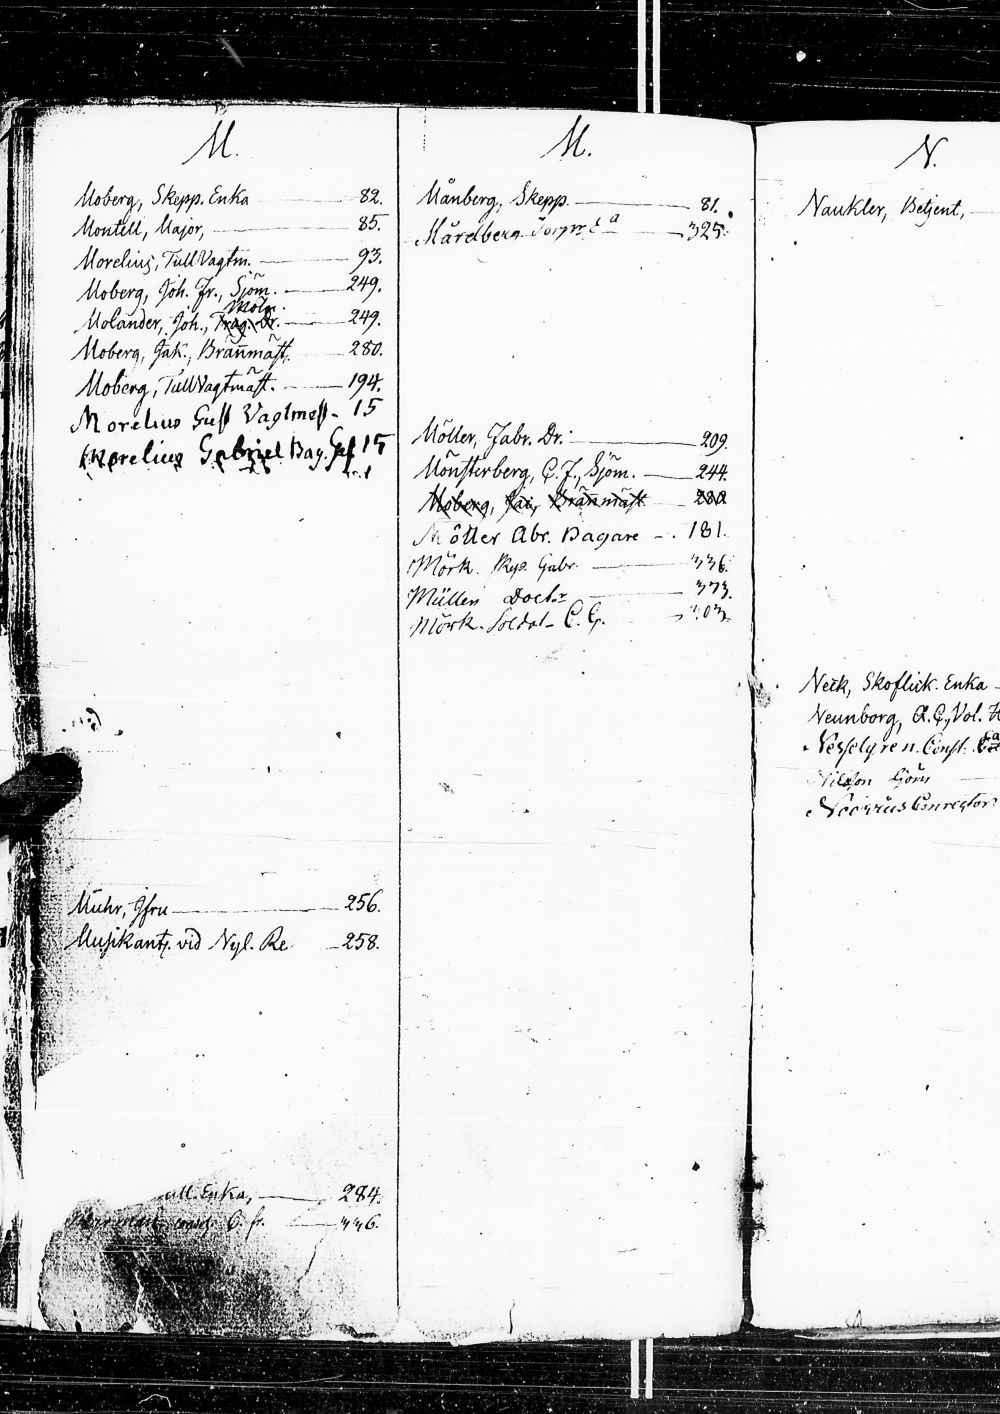 M.
Moberg, Skepp. Enka 82.
Montell, Major, 85.
Morelius, TullVagtm. 93.
Moberg, Joh. Fr., Sjöm. 249.
Molander, Joh., Möln. 249.
Moberg, Jak., Brännmäst. 280.
Moberg, TullVagtmäst. 194.
Morelius Gust Vagtmest. 15
Morelius Gabriel Bag. Ges 15
Muhr, Jfru 256.
Musikant. vid Nyl. Re 258.
Enka, 284.
336.
M.
Månberg, Skepp. 81.
Mårdberg 325.
Möller, Fabr. Dr. 209.
Mönsterberg, C. F., Sjöm. 244.
Moberg, Jak, Brännmäst 280
Möller Abr. Bagare 181.
Mörk. Skep. Gabr. 336.
Müller Doctr 373.
Mörk. Soldat C. G.
N.
Naukler, Betjent,
Neck, Skoflick. Enka
Neunborg, A. G., Vol.
Nesselgren. Const.
Nilsson Sjöm
Conrector